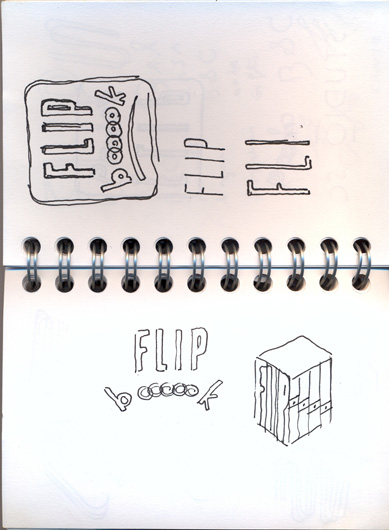 FLIP
booook
FLIP
FLI
FLIP
boooook
FLIP